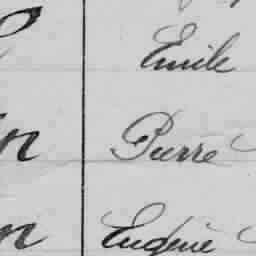 Emile
Pierre
Eugénie